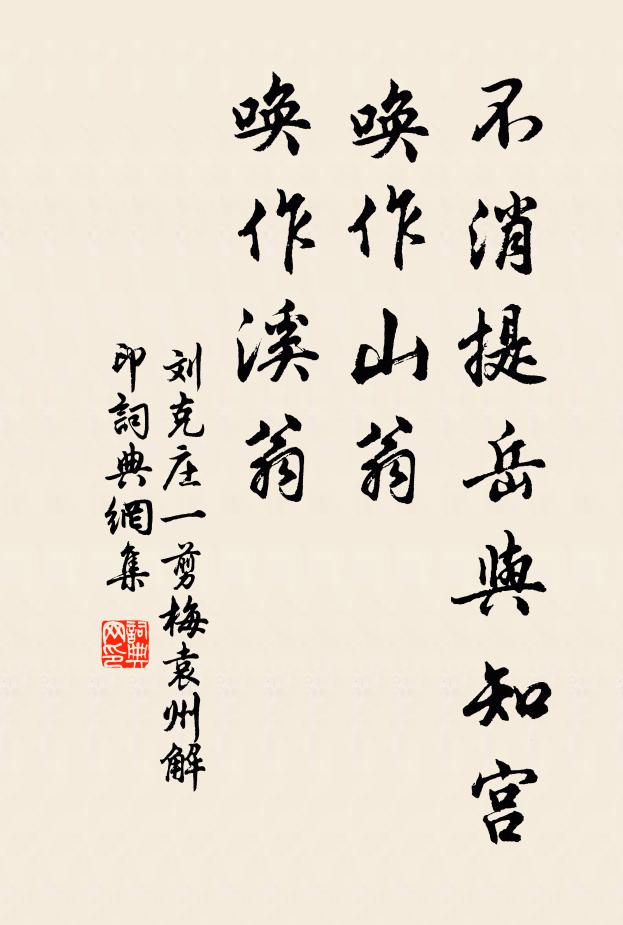 不消提岳與知宫
喚作山翁
喚作溪翁
刘克庄一剪梅袁州解
印詞典網集
詞典
网印